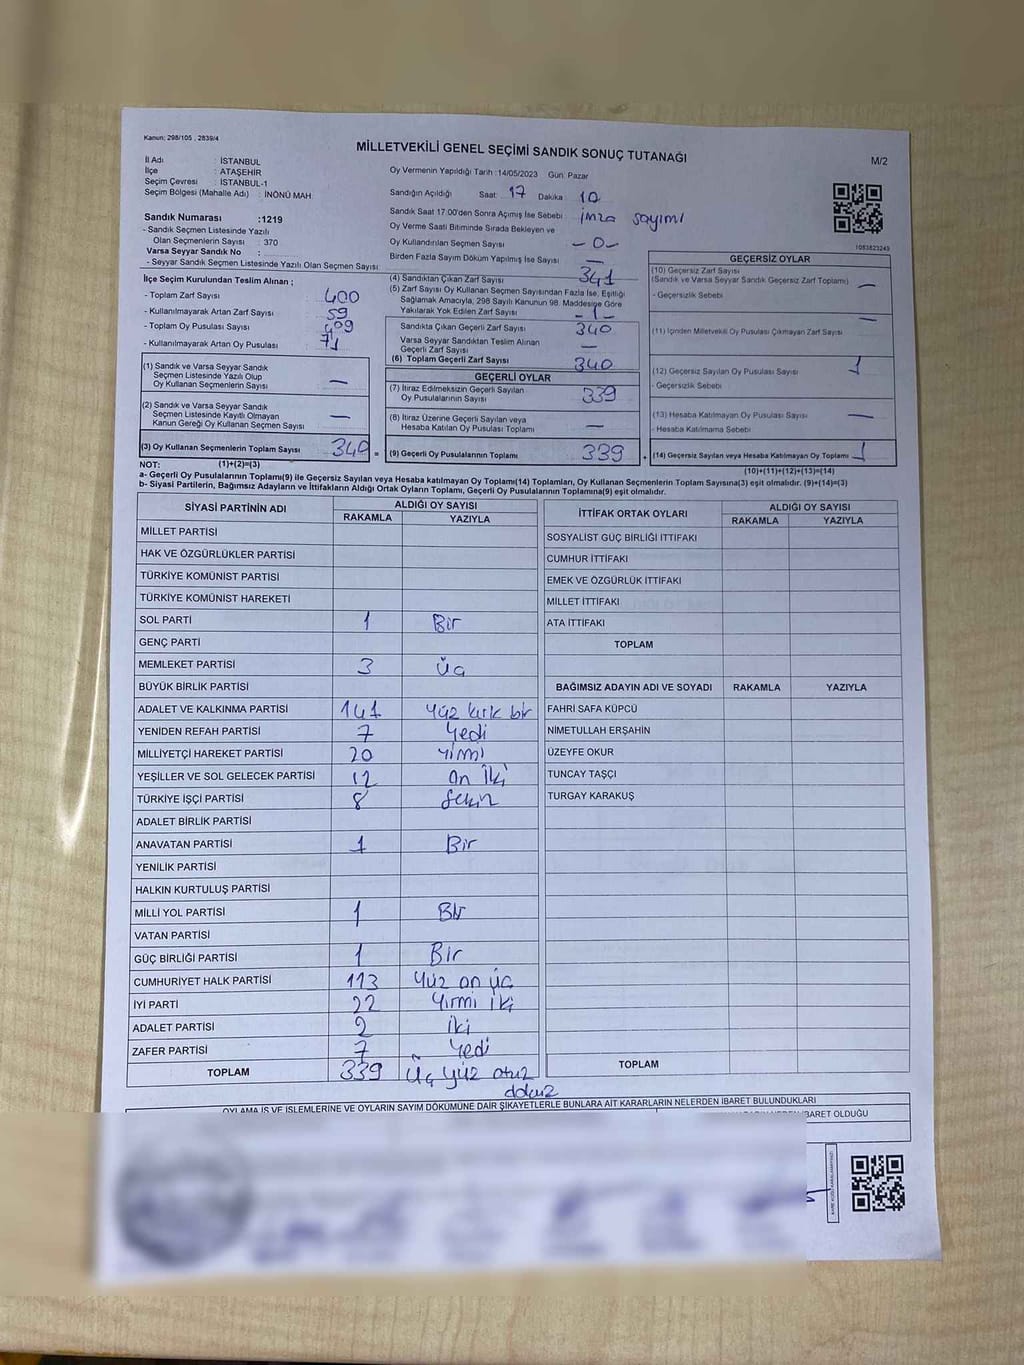 Kanun: 298/105 , 2839/4
MİLLETVEKİLİ GENEL SEÇİMİ SANDIK SONUÇ TUTANAĞI
M/2
İl Adı : İSTANBUL
İlçe : ATAŞEHİR
Seçim Çevresi : İSTANBUL-1
Seçim Bölgesi (Mahalle Adı) : İNÖNÜ MAH
Oy Vermenin Yapıldığı Tarih :14/05/2023 Gün: Pazar
Sandığın Açıldığı Saat: 17 Dakika 10
Sandık Saat 17:00'den Sonra Açımış İse Sebebi : imza sayımı
Oy Verme Saati Bitiminde Sırada Bekleyen ve
Oy Kullandırılan Seçmen Sayısı : -0-
Birden Fazla Sayım Döküm Yapılmış İse Sayısı : —
Sandık Numarası :1219
- Sandık Seçmen Listesinde Yazılı
Olan Seçmenlerin Sayısı : 370
Varsa Seyyar Sandık No :
- Seyyar Sandık Seçmen Listesinde Yazılı Olan Seçmen Sayısı
1083823243
İlçe Seçim Kurulundan Teslim Alınan ;
- Toplam Zarf Sayısı : 400
- Kullanılmayarak Artan Zarf Sayısı : 59
- Toplam Oy Pusulası Sayısı : 409
- Kullanılmayarak Artan Oy Pusulası : 71
(1) Sandık ve Varsa Seyyar Sandık
Seçmen Listesinde Yazılı Olup
Oy Kullanan Seçmenlerin Sayısı —
(2) Sandık ve Varsa Seyyar Sandık
Seçmen Listesinde Kayıtlı Olmayan
Kanun Gereği Oy Kullanan Seçmen Sayısı —
(3) Oy Kullanan Seçmenlerin Toplam Sayısı 340 =
(4) Sandıktan Çıkan Zarf Sayısı : 341
(5) Zarf Sayısı Oy Kullanan Seçmen Sayısından Fazla İse, Eşitliği
Sağlamak Amacıyla, 298 Sayılı Kanunun 98. Maddesine Göre
Yakılarak Yok Edilen Zarf Sayısı : -1-
Sandıkta Çıkan Geçerli Zarf Sayısı : 340
Varsa Seyyar Sandıktan Teslim Alınan
Geçerli Zarf Sayısı : —
(6) Toplam Geçerli Zarf Sayısı : 340
GEÇERLİ OYLAR
(7) İtiraz Edilmeksizin Geçerli Sayılan
Oy Pusulalarının Sayısı : 339
(8) İtiraz Üzerine Geçerli Sayılan veya
Hesaba Katılan Oy Pusulası Toplamı : —
(9) Geçerli Oy Pusulalarının Toplamı : 339 +
GEÇERSİZ OYLAR
(10) Geçersiz Zarf Sayısı
(Sandık ve Varsa Seyyar Sandık Geçersiz Zarf Toplamı) : —
- Geçersizlik Sebebi : —
(11) İçinden Milletvekili Oy Pusulası Çıkmayan Zarf Sayısı :
(12) Geçersiz Sayılan Oy Pusulası Sayısı : 1
- Geçersizlik Sebebi :
(13) Hesaba Katılmayan Oy Pusulası Sayısı : —
- Hesaba Katılmama Sebebi :
(14) Geçersiz Sayılan veya Hesaba Katılmayan Oy Toplamı : 1
NOT: (1)+(2)=(3)
(10)+(11)+(12)+(13)=(14)
a- Geçerli Oy Pusulalarının Toplamı(9) ile Geçersiz Sayılan veya Hesaba katılmayan Oy Toplamı(14) Toplamları, Oy Kullanan Seçmenlerin Toplam Sayısına(3) eşit olmalıdır. (9)+(14)=(3)
b- Siyasi Partilerin, Bağımsız Adayların ve İttifakların Aldığı Ortak Oyların Toplamı, Geçerli Oy Pusulalarının Toplamına(9) eşit olmalıdır.
SİYASİ PARTİNİN ADI ALDIĞI OY SAYISI
RAKAMLA YAZIYLA
MİLLET PARTİSİ
HAK VE ÖZGÜRLÜKLER PARTİSİ
TÜRKİYE KOMÜNİST PARTİSİ
TÜRKİYE KOMÜNİST HAREKETİ
SOL PARTİ 1 Bir
GENÇ PARTİ
MEMLEKET PARTİSİ 3 Üç
BÜYÜK BİRLİK PARTİSİ
ADALET VE KALKINMA PARTİSİ 141 Yüz kırk bir
YENİDEN REFAH PARTİSİ 7 Yedi
MİLLİYETÇİ HAREKET PARTİSİ 20 Yirmi
YEŞİLLER VE SOL GELECEK PARTİSİ 12 On İki
TÜRKİYE İŞÇİ PARTİSİ 8 Sekiz
ADALET BİRLİK PARTİSİ
ANAVATAN PARTİSİ 1 Bir
YENİLİK PARTİSİ
HALKIN KURTULUŞ PARTİSİ
MİLLİ YOL PARTİSİ 1 Bir
VATAN PARTİSİ
GÜÇ BİRLİĞİ PARTİSİ 1 Bir
CUMHURİYET HALK PARTİSİ 113 Yüz on üç
İYİ PARTİ 22 Yirmi iki
ADALET PARTİSİ 2 İki
ZAFER PARTİSİ 7 Yedi
TOPLAM 339 Üç yüz otuz
dokuz
İTTİFAK ORTAK OYLARI ALDIĞI OY SAYISI
RAKAMLA YAZIYLA
SOSYALİST GÜÇ BİRLİĞİ İTTİFAKI
CUMHUR İTTİFAKI
EMEK VE ÖZGÜRLÜK İTTİFAKI
MİLLET İTTİFAKI
ATA İTTİFAKI
TOPLAM
BAĞIMSIZ ADAYIN ADI VE SOYADI RAKAMLA YAZIYLA
FAHRİ SAFA KÜPCÜ
NİMETULLAH ERŞAHİN
ÜZEYFE OKUR
TUNCAY TAŞÇI
TURGAY KARAKUŞ
TOPLAM
OYLAMA İŞ VE İŞLEMLERİNE VE OYLARIN SAYIM DÖKÜMÜNE DAİR ŞİKAYETLERLE BUNLARA AİT KARARLARIN NELERDEN İBARET BULUNDUKLARI
İBARET OLDUĞU